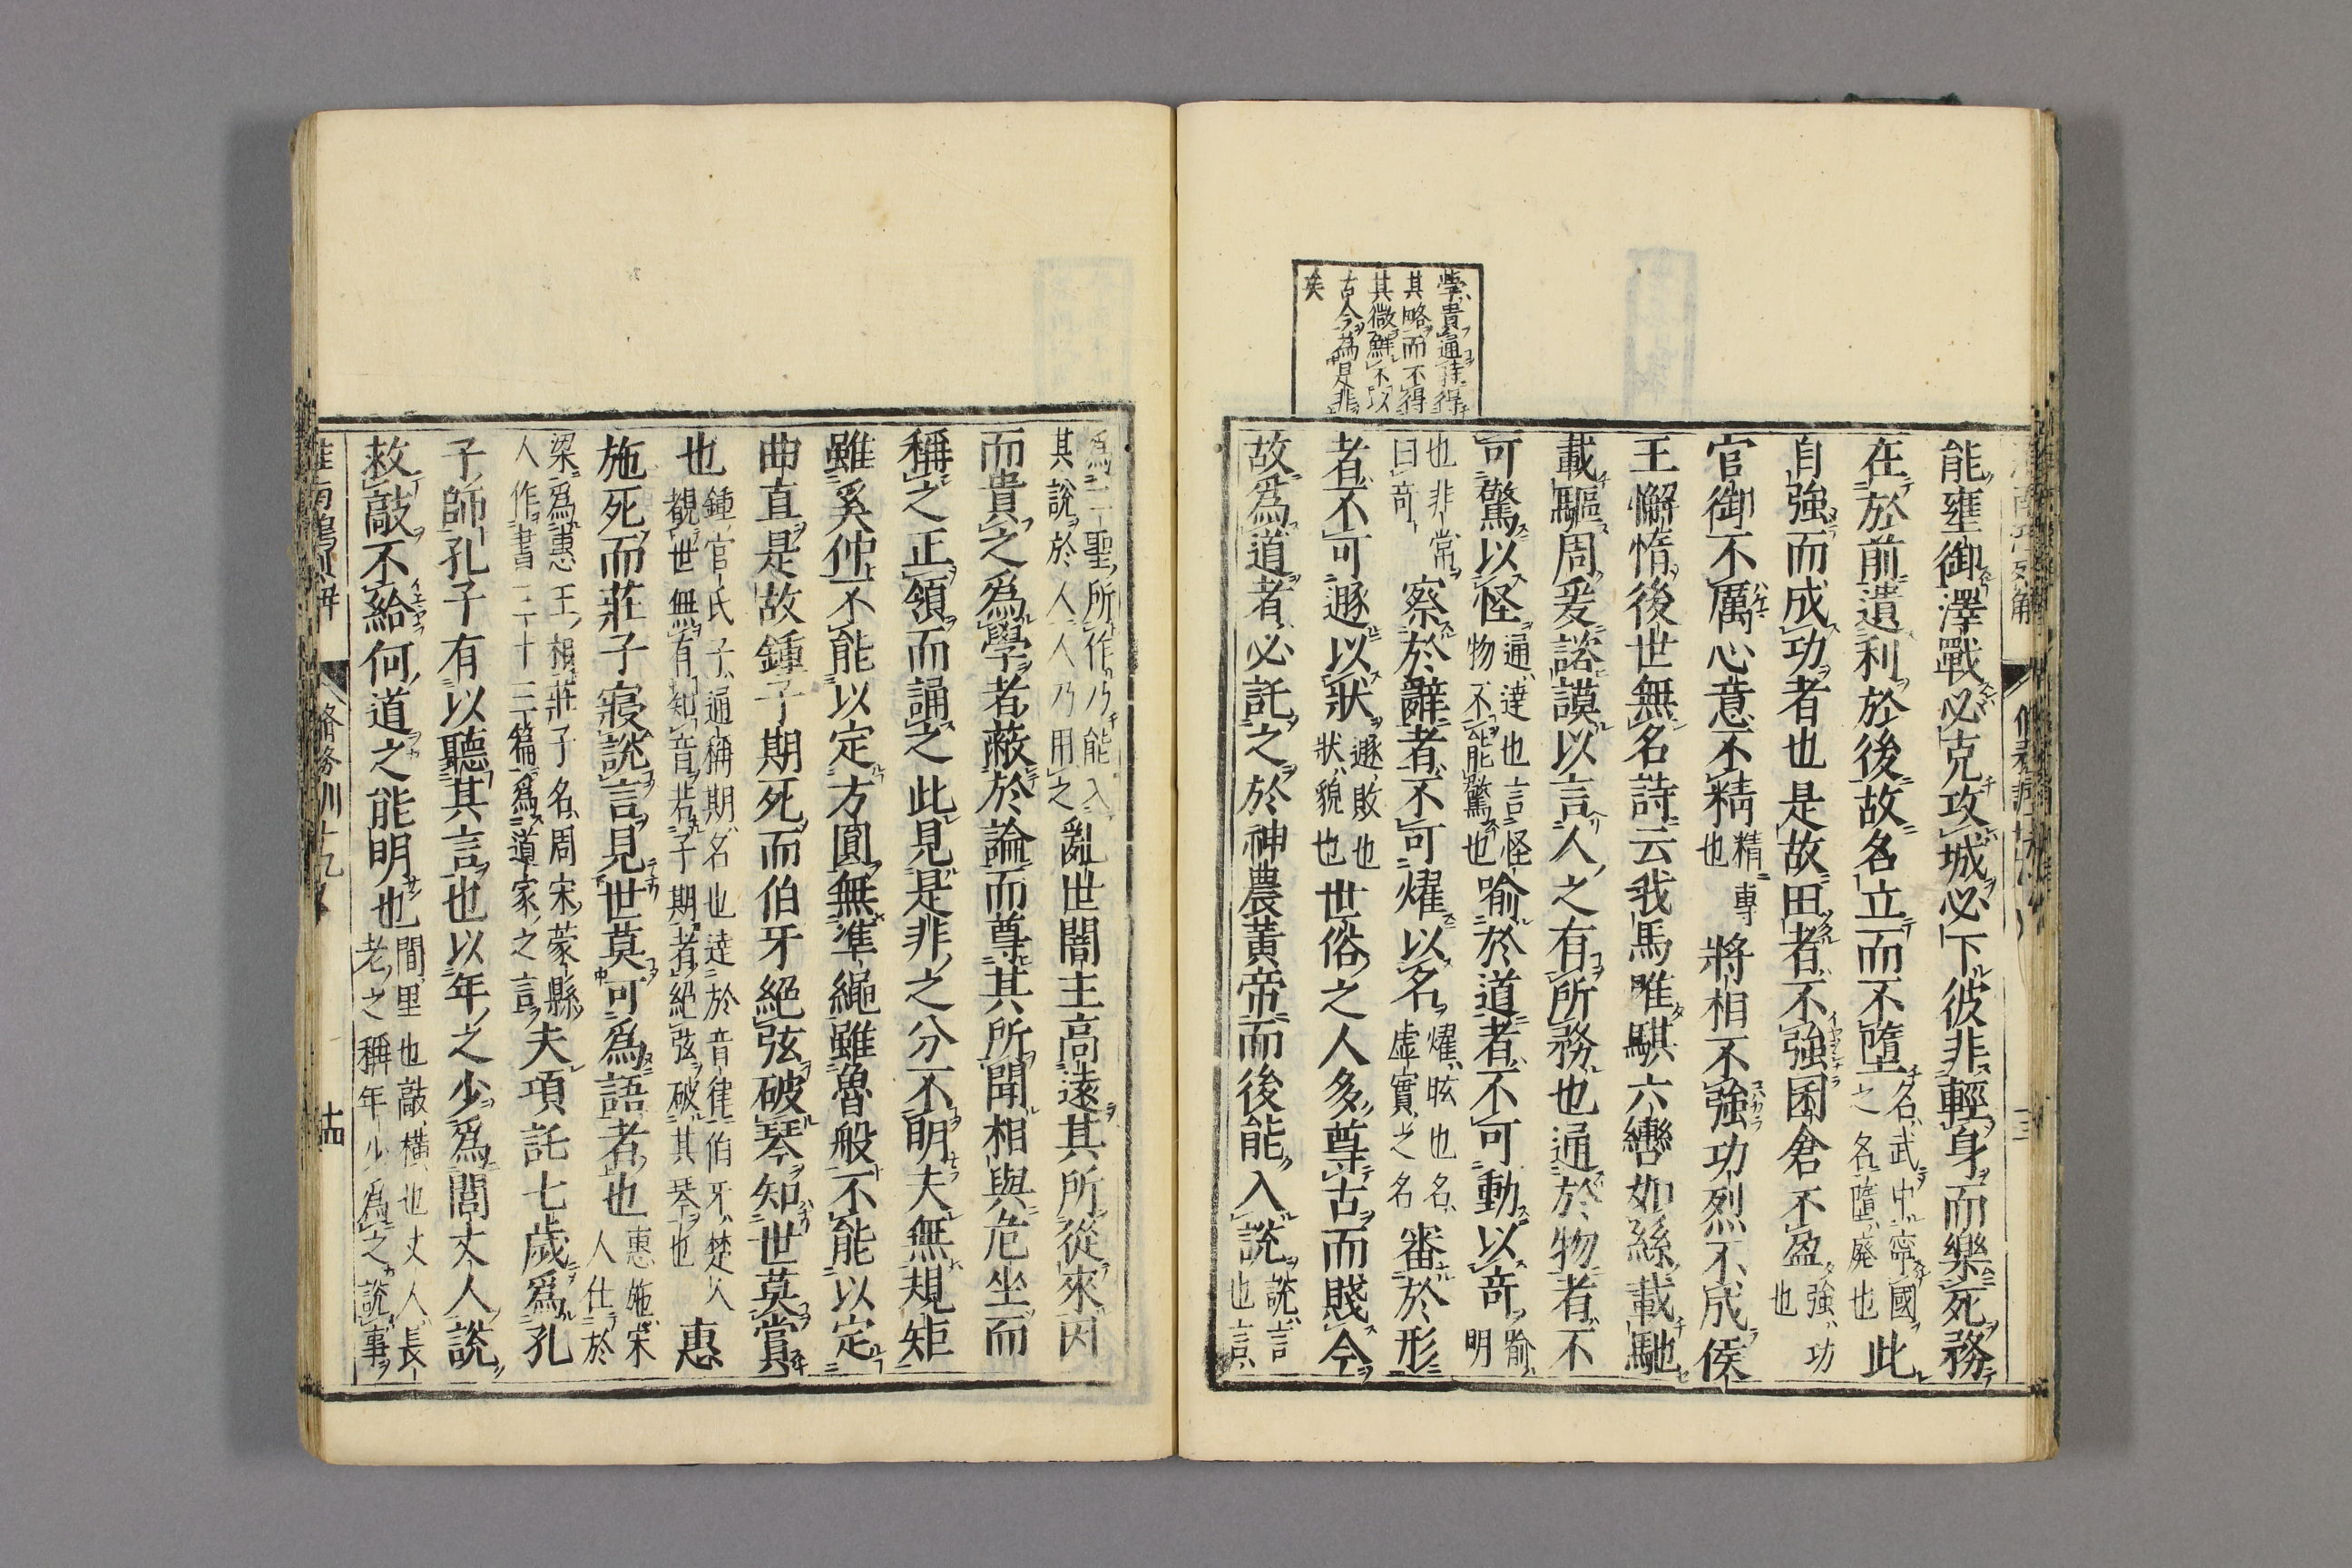 學貴通持得
其略而不得
其微鮮不以
古今為是非
矣
能壅御澤戰必克攻城必下彼非輕身而樂死務
在於前遺利於後故名立而不墮名武中寧國之名墮廢也此
自強而成功者也是故田者不強囷倉不盈強功也
官御不厲心意不精精專也將相不強功烈不成侯
王懈惰後世無名詩云我馬唯騏六轡如絲載馳
載驅周爰諮謨以言人之有所務也通於物者不
可驚以怪通達也言怪物不能驚也喻於道者不可動以奇喻明
也非常曰奇察於辭者不可燿以名燿眩也名虛實之名審於形
者不可遯以狀遯敗也狀貌也世俗之人多尊古而賤今
故爲道者必託之於神農黃帝而後能入說說言也言
爲二聖所作乃能入其說於人人乃用之亂世闇主高遠其所從來因
而貴之爲學者蔽於論而尊其所聞相與危坐而
稱之正領而誦之此見是非之分不明夫無規矩
雖奚仲不能以定方圓無準繩雖魯般不能以定
曲直是故鍾子期死而伯牙絕弦破琴知世莫賞
也鍾官氏子通稱期名也達於音律伯牙楚人覩世無有知音若子期者絕弦破其琴也惠
施死而莊子寢說言見世莫可爲語者也惠施宋人仕於
梁爲惠王相莊子名周宋蒙縣人作書三十三篇爲道家之言夫項託七歲爲孔
子師孔子有以聽其言也以年之少爲閭丈人說
救敲不給何道之能明也閭里也敲橫也丈人長老之稱年少爲之說事
淮南鴻烈解 脩務訓十九 十四